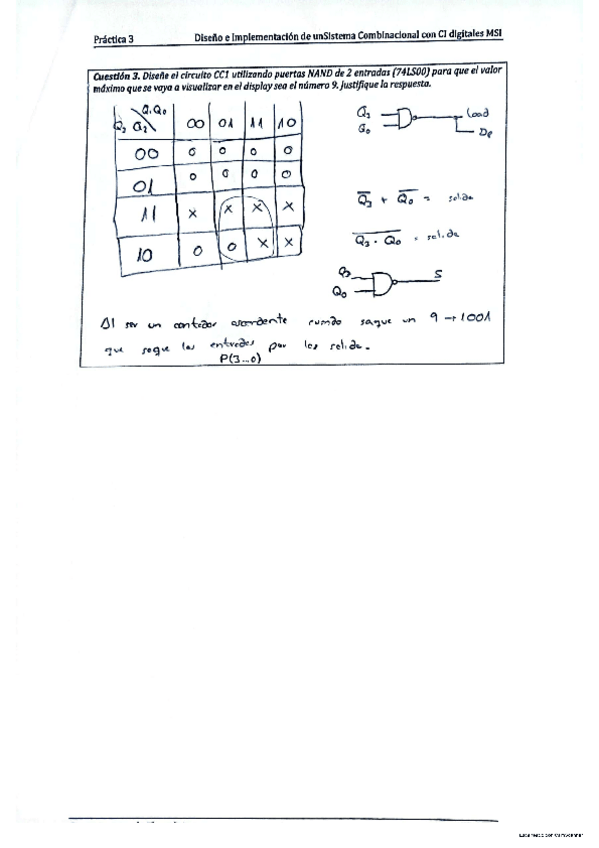 Práctica 3 Diseño e Implementación de unSistema Combinacional con CI digitales MSI
Cuestión 3. Diseñe el circuito CC1 utilizando puertas NAND de 2 entradas (74LS00) para que el valor
máximo que se vaya a visualizar en el display sea el número 9. Justifique la respuesta.
Q₁Q₀
Q₃ Q₂ 00 01 11 10
00 0 0 0 0
01 0 0 0 0
11 X X X X
10 0 0 X X
Q₃ Load
Q₀ De
Q̅₃ + Q̅₀ = salida
Q₃ · Q₀ = salida
Q₃ S
Q₀
Al ser un contador ascendente cuando saque un 9 → 1001
que saque las entradas por las salida.
P(3...0)